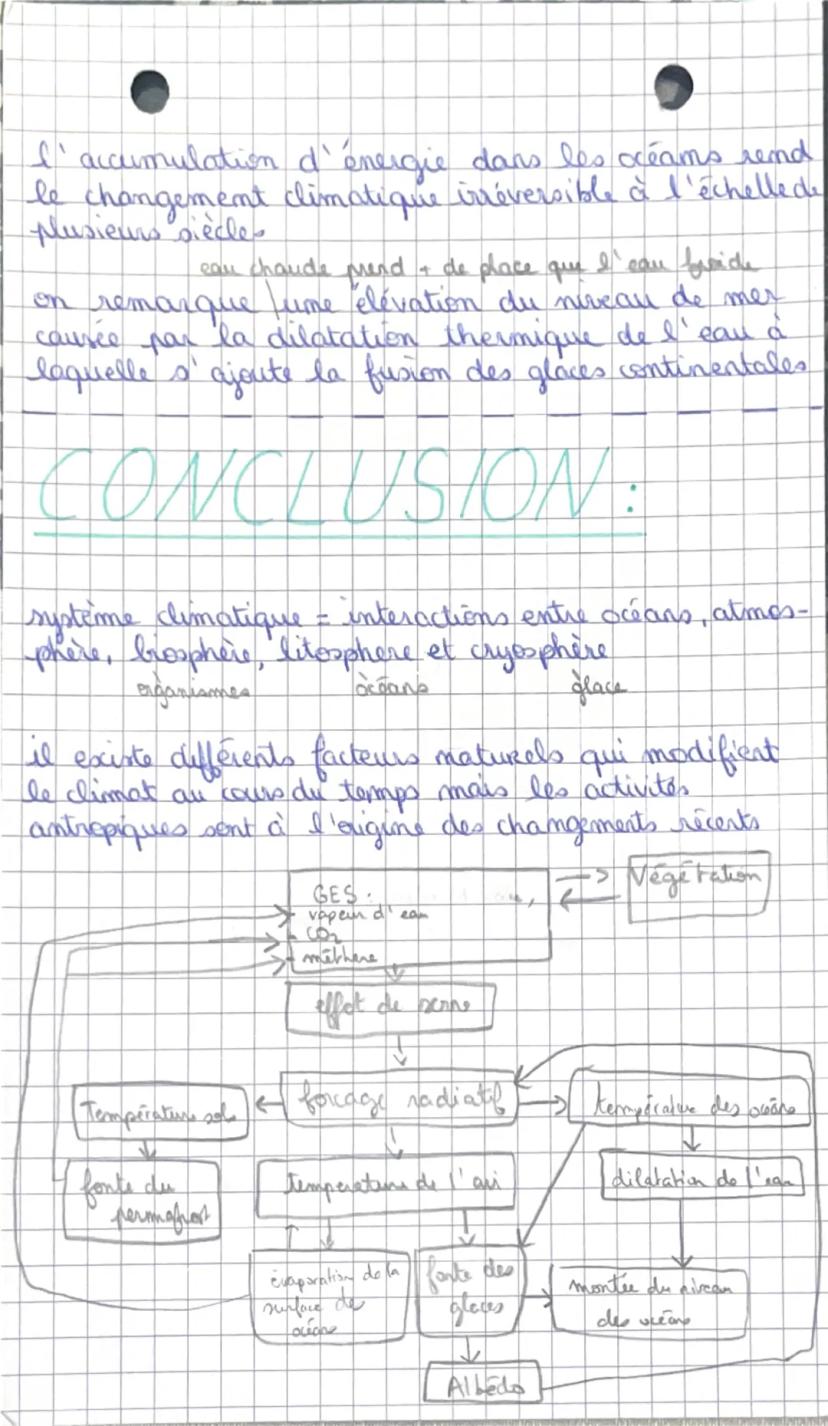 l'accumulation d'énergie dans les océans rend
le changement climatique irréversible à l'échelle de
plusieurs siècles
eau chaude prend + de place que l'eau froide
on remarque une élévation du niveau de mer
causée par la dilatation thermique de l'eau à
laquelle s'ajoute la fusion des glaces continentales
CONCLUSION :
système climatique = interactions entre océans, atmos-
phère, biosphère, litosphere et cryosphère
organismes océans glace
il existe différents facteurs naturels qui modifient
le climat au cours du temps mais les activités
antropiques sont à l'origine des changements récents
GES :
Végétation
vapeur d'eau
- CO2
- méthane
effet de serre
forcage radiatif
température des océans
Température sol
température de l'air
dilatation de l'eau
fonte du
permafrost
évaporation de la
surface de
océans
fonte des
glaces
montée du niveau
des océans
Albédo